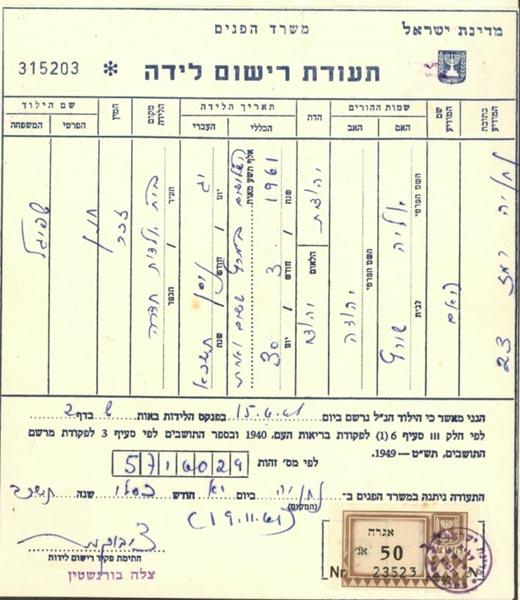 מדינת ישראל
משרד הפנים
תעודת רישום לידה * 315203
כתובת המודיע
שם המודיע
שמות ההורים
הדת
תאריך הלידה
מקום הלידה
המין
שם הילוד
האם
האב
הכללי
העברי
הפרטי
המשפחה
נחליה רמז 23
האם
השם הפרטי
לבית
שורץ
השם הפרטי
יהודה
יהודית
הלאום
יהודי
אלף תשע מאות
שנה 1961 / חודש 3 / יום 30
יום יג / חודש ניסן / שנה תשכ"א
העיר / הכפר
בית יולדות חדרה
זכר
חנן
שפיגל
הנני מאשר כי הילוד הנ"ל נרשם ביום 15.4.61 בפנקס הלידות באות ש בדף 2
לפי חלק III סעיף 6 (1) לפקודת בריאות העם, 1940 ובספר התושבים לפי סעיף 3 לפקודת מרשם
התושבים, תש"ט—1949.
לפי מס' זהות 5716029
התעודה ניתנה במשרד הפנים ב־ ביום יא חודש כסלו שנה תשכ"ב
(המקום)
(19.11.61)
חתימת פקיד רישום לידות
צלה בורנשטין
אגרה
50 אג'
Nr 23523